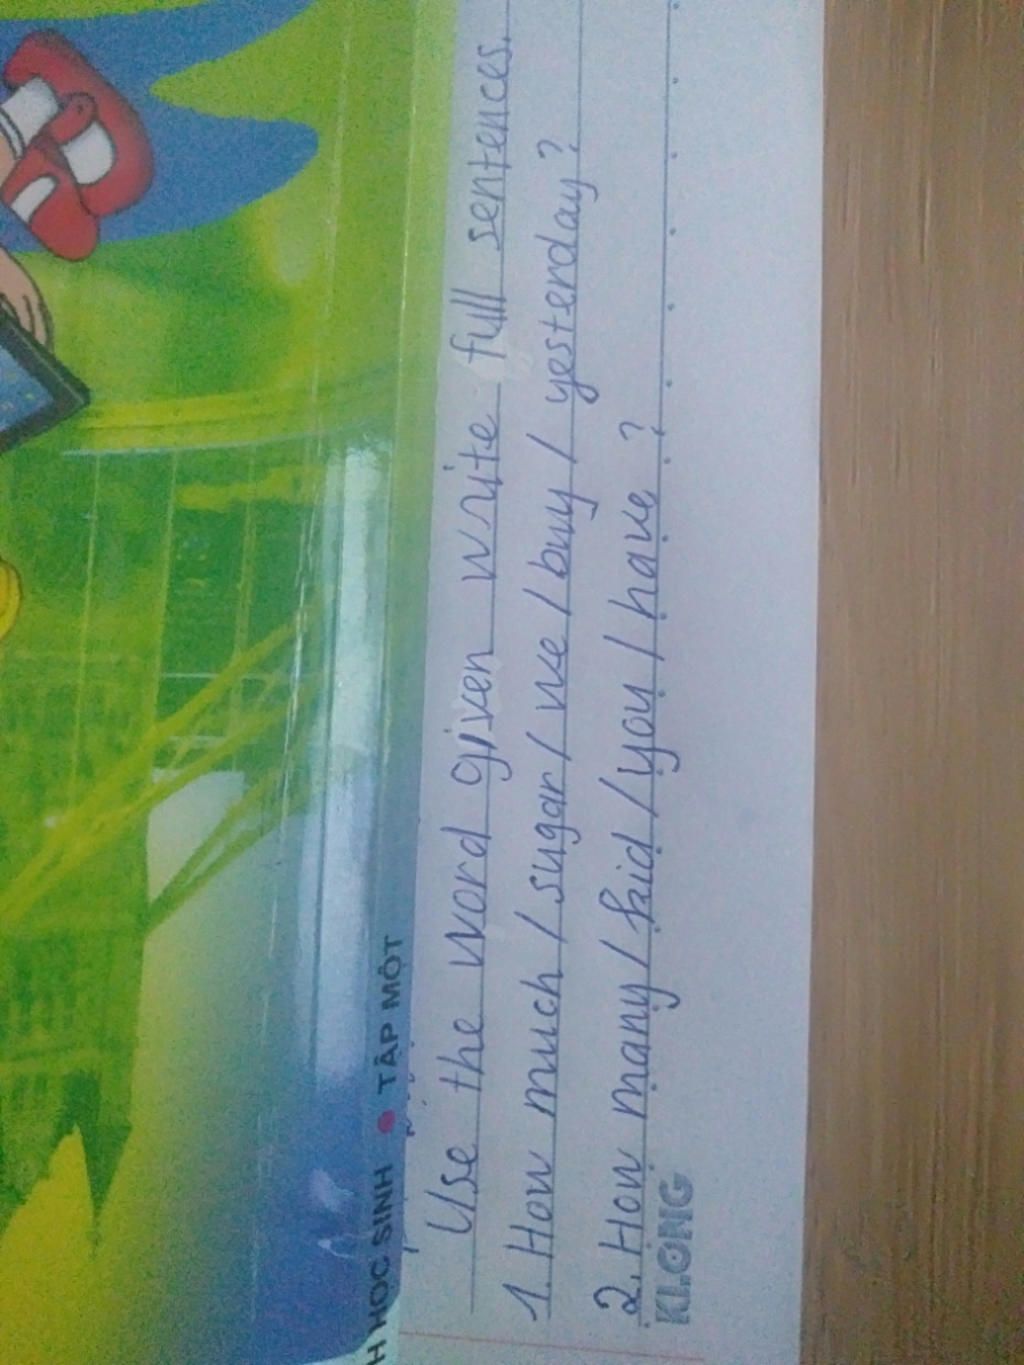 H HỌC SINH • TẬP MỘT
Use the word given write full sentences.
1. How much / sugar / we / buy / yesterday?
2. How many / kid / you / have?
KLONG